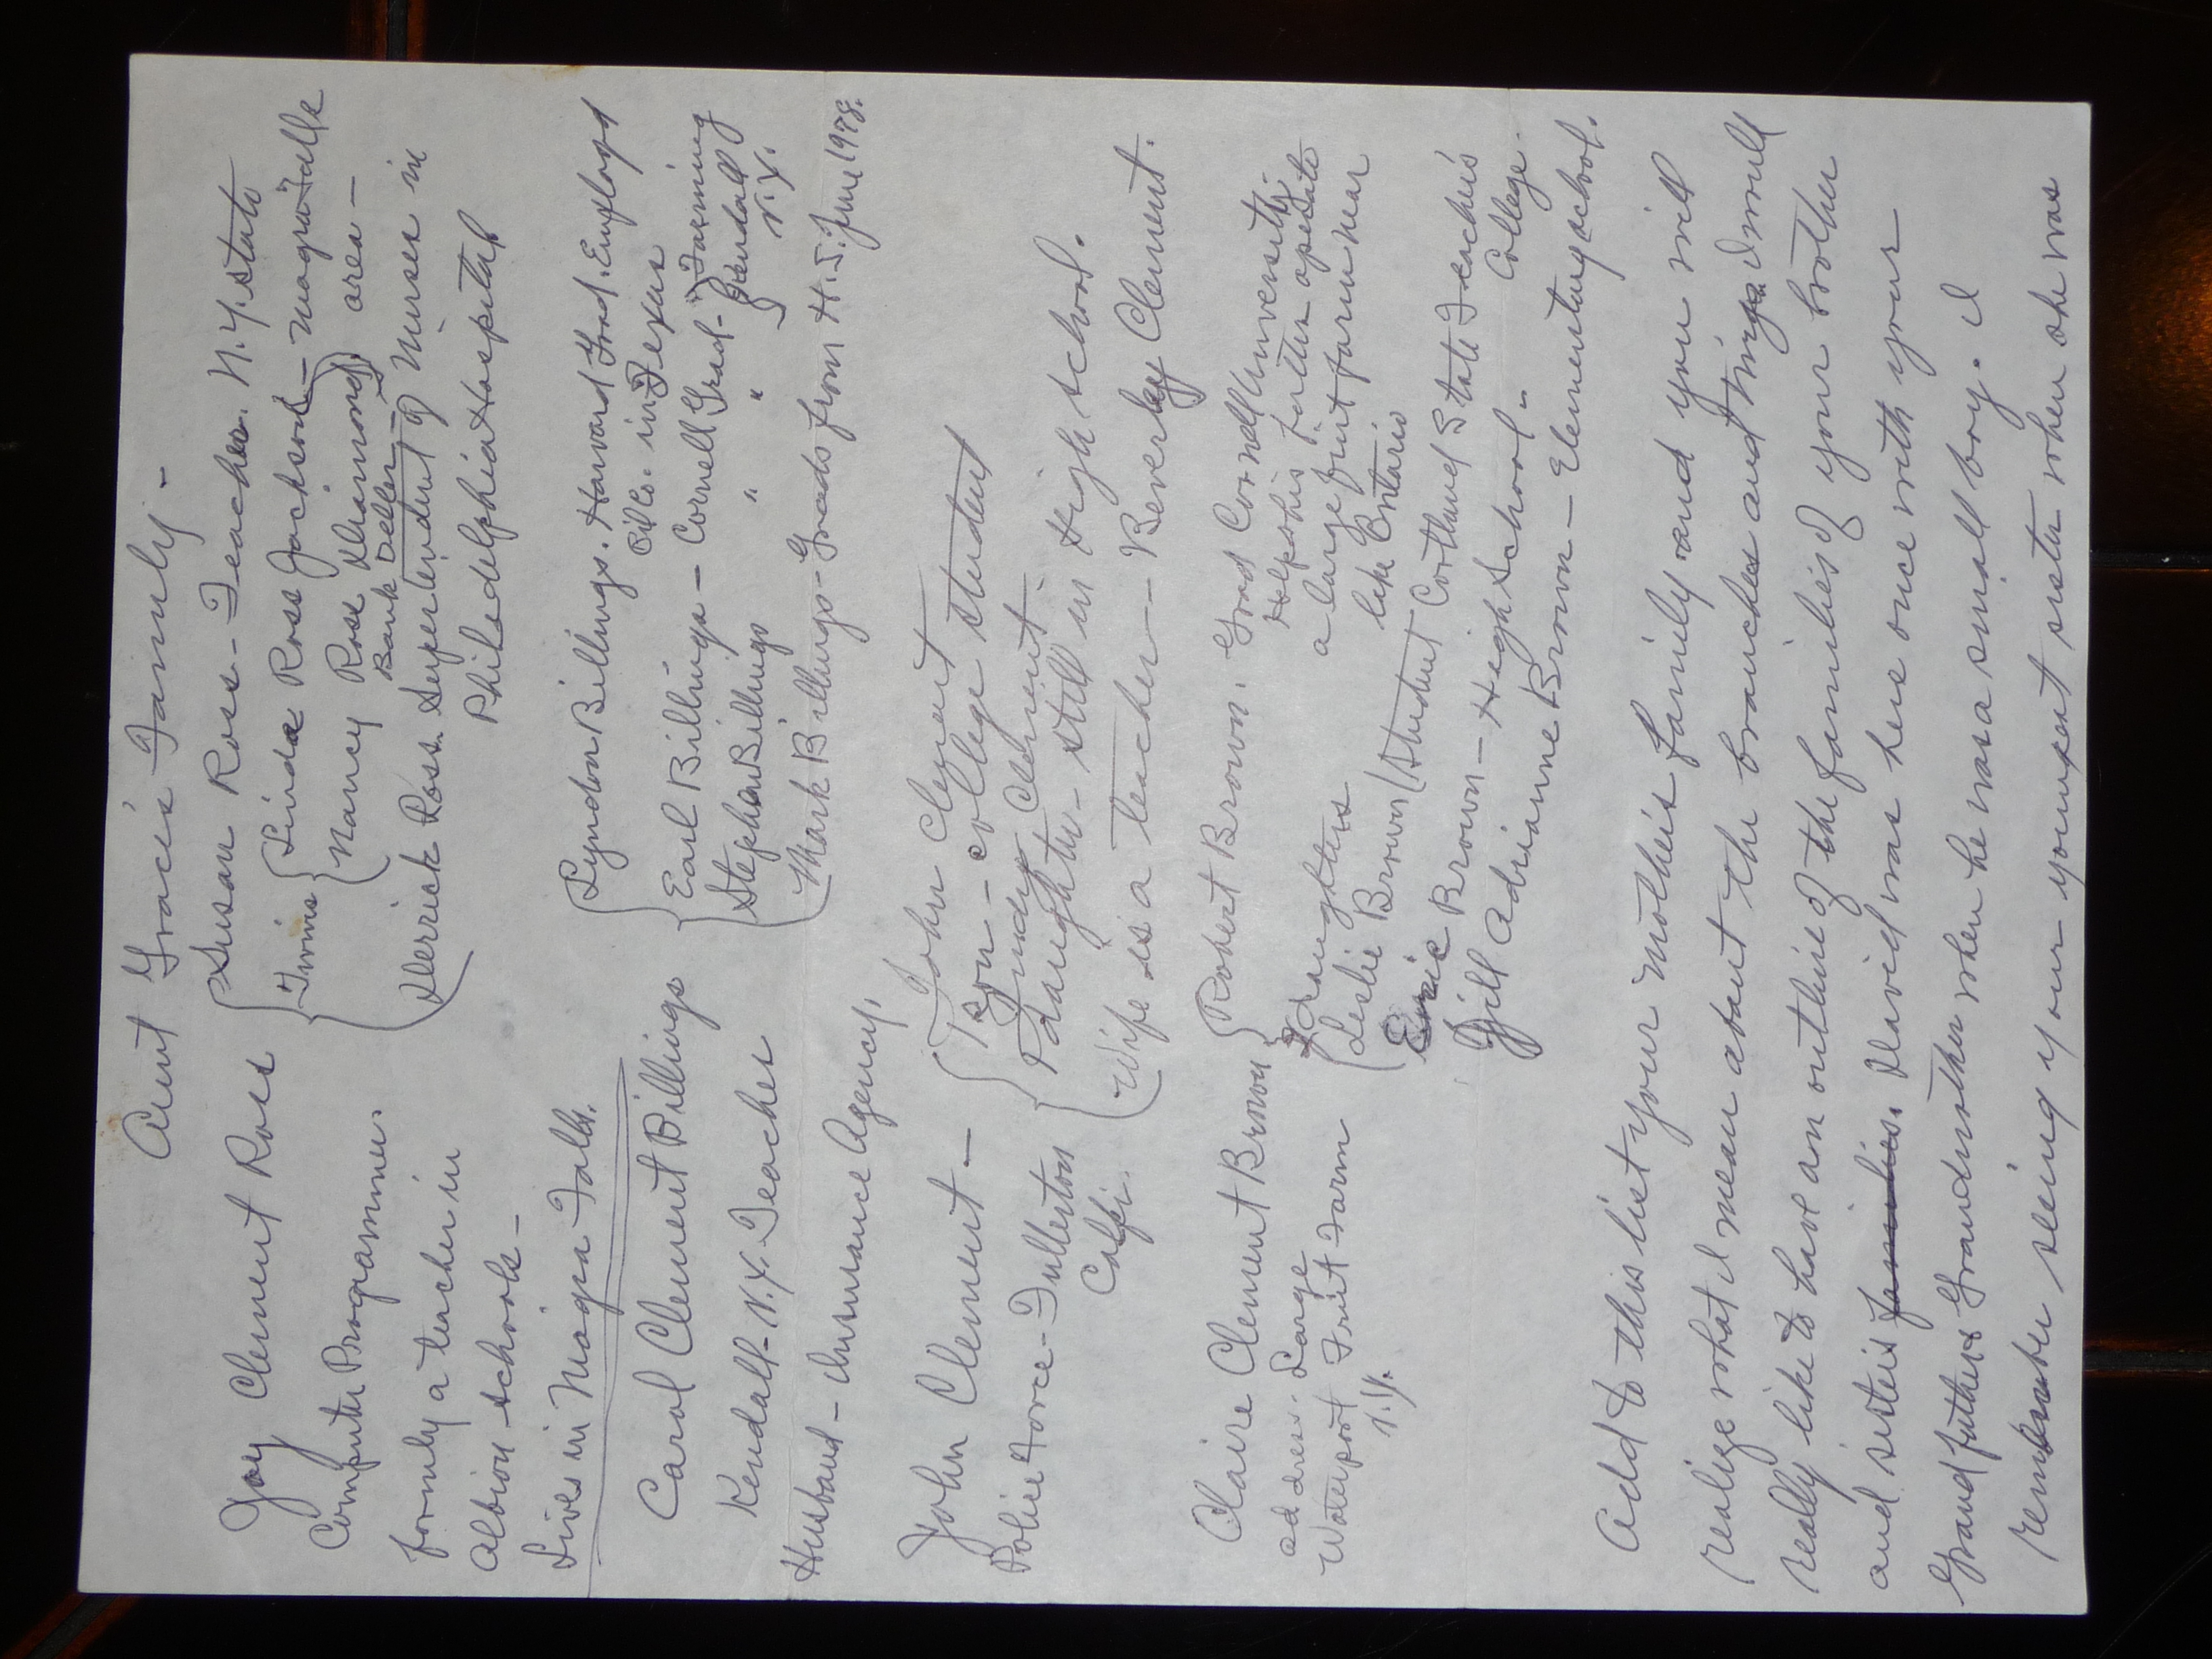 Aunt Grace's Family -
Joy Clement Ross
Computer Programmer.
formly a teacher in
Albion schools -
Lives in Niagra Falls.
Susan Ross - Teacher. N.Y. state
Twins
Linda Ross Jackson - Niagra Falls
Nancy Ross area -
Bank Teller -
Derrick Ross. Superintendent of Nurses in
Philadelphia Hospital
Carol Clement Billings
Kendall - N.Y. Teacher
Husband - Insurance Agency,
Lyndon Billings. Harvard Grad. Employed
Oil Co. in Texas
Earl Billings - Cornell Grad - Farming
Stephen Billings " " Kendall
N.Y.
Mark Billings - Grads from H.S. June 1978.
John Clement -
Police Force - Fullerton
Calfi.
John Clement
Son - college student
Cindy Clement
Daughter - still in High school.
Wife is a teacher - Beverley Clement.
Claire Clement Brown
address. Large
Waterport Fruit Farm
N.Y.
Robert Brown. Grad Cornell University.
Helps his father operate
a large fruit farm near
lake Ontario
daughters
Leslie Brown (Student Cortland State Teacher's
College.
Eric Brown - High School -
Jill Adrianne Brown - Elementary school.
Add to this list your mother's family and you will
realize what I mean about the branches and twigs. I would
really like to have an outline of the families of your brother
and sister's families. David was here once with your
Grandfather & Grandmother when he was a small boy. I
remember seeing your youngest sister when she was